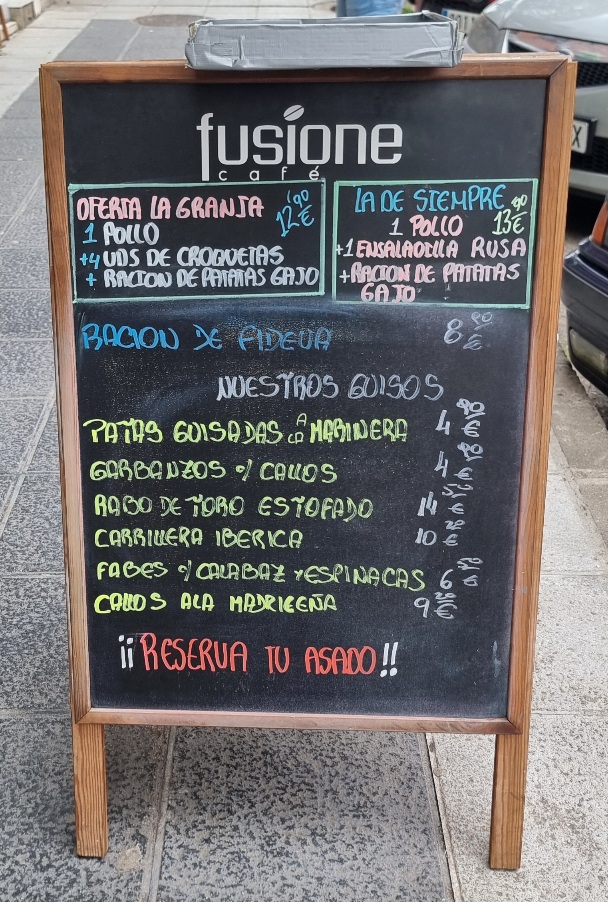 fusione
café
OFERTA LA GRANJA 12'90 €
1 POLLO
+4 UDS DE CROQUETAS
+ RACION DE PATATAS GAJO
LA DE SIEMPRE
1 POLLO 13'90 €
+1 ENSALADILLA RUSA
+RACION DE PATATAS
GAJO
RACION DE FIDEUA 8'90 €
NUESTROS GUISOS
PATAS GUISADAS A LA MARINERA 4'90 €
GARBANZOS C/ CALLOS 4'90 €
RABO DE TORO ESTOFADO 14 €
CARRILLERA IBERICA 10 €
FABES C/ CALABAZ Y ESPINACAS 6
CALLOS A LA MADRILEÑA 9 €
¡¡RESERVA TU ASADO!!
X